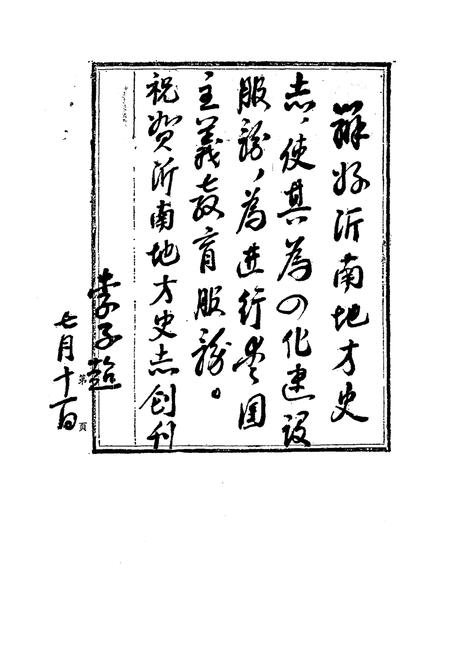 办好沂南地方史
志，使其為四化建设
服務，為进行爱国
主義教育服務。
祝贺沂南地方史志创刊
李子超
七月十一日
第 頁